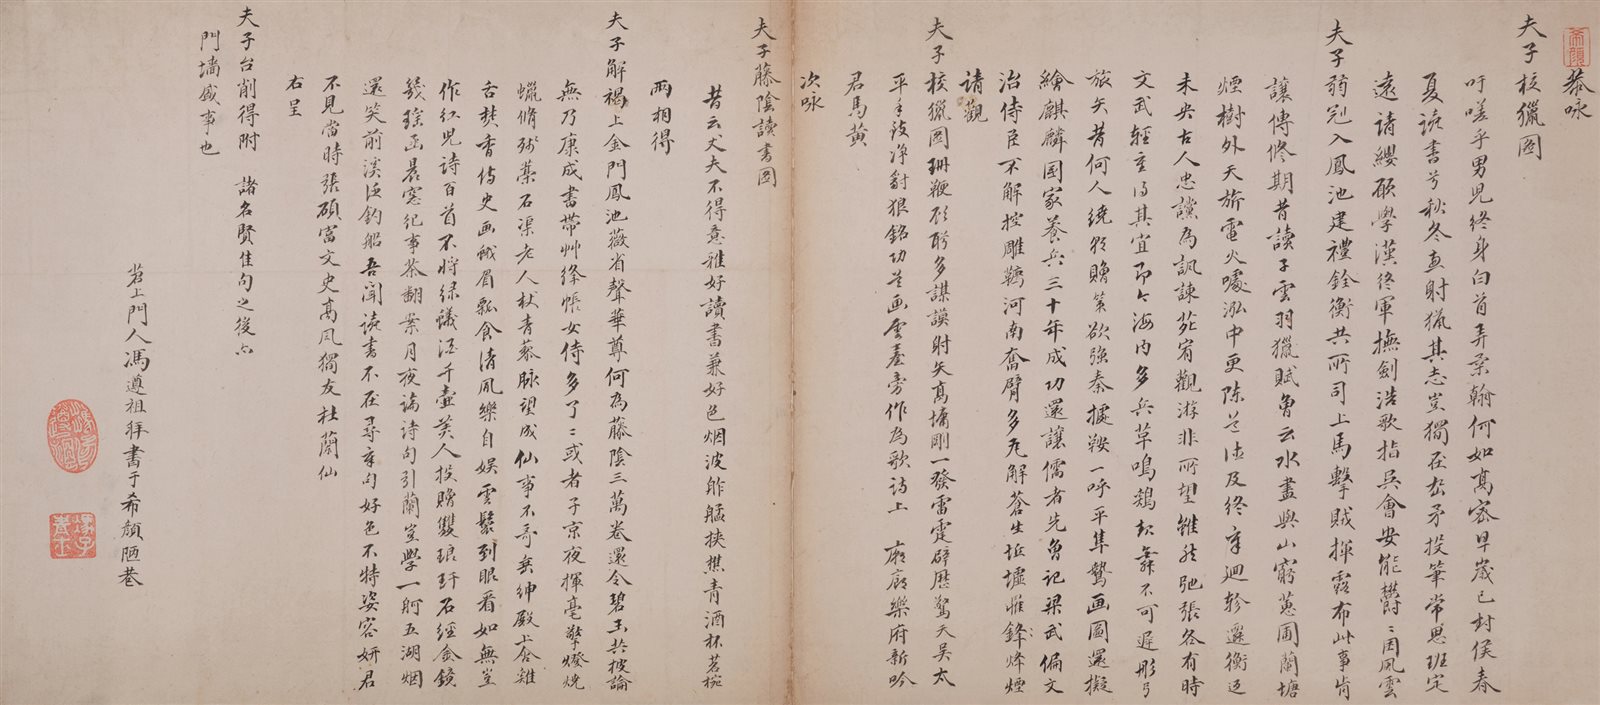 恭咏
夫子校獵圖
吁嗟乎男兒終身白首弄柔翰何如高密早歲已封侯春
夏讀書兮秋冬射獵其志豈獨在螯矛投筆常思班定
遠請纓願學漢終軍撫劍浩歌指吳會安能鬱鬱困風雲
夫子弱冠入鳳池建禮銓衡共所司上馬擊賊揮露布此事肯
讓傅修期昔讀子雲羽獵賦魯云水畫與山窮蕙圃蘭塘
煙樹外天旂電火噱泓中更陳道德及終年迴軫還衡返
未央古人忠讜為諷諫苑宥觀游非所望雖然弛張各有時
文武輕重得其宜即今海內多兵革鳴鷄起舞不可遲彤弓
旅矢昔何人繞朝贈策欲強秦據鞍一呼平隼鶩画圖還擬
繪麒麟國家養兵三十年成功還讓儒者先魯記梁武偏文
治侍臣不解控雕韉河南奮臂多瓦解蒼生丘墟惟鋒烽煙
請觀
夫子校獵圖珊鞭影聍多謀謨射矢高墉剛一發雷霆辟歷驚天吳太
平手致净豺狼銘功並画雲臺旁作為歌詩上 廊廟樂府新吟
君馬黃
次咏
夫子藤陰讀書圖
昔云丈夫不得意雅好讀書兼好色烟波舴艋挾樵青酒杯茗椀
兩相得
夫子解褐上金門鳳池薇省聲華尊何為藤陰三萬卷還令碧玉共披論
無乃康成書帶艸絳帳女侍多了了或者子京夜揮毫擎燈燒
蠟脩殘藁石渠老人杖青藜脉望成仙事不奇垂紳殿上含雞
舌焚香侍史画蛾眉瓢食清風樂自娛雲鬟到眼看如無豈
作紅兒詩百首不將綠蟻酒千壺美人投贈雙琅玕石經金鏡
幾瑤函晨窓紀事茶翻案月夜論詩句引蘭豈學一舸五湖烟
還笑前溪泛釣船吾聞讀書不在尋章句好色不特姿容妍君
不見當時張碩富文史高風獨友杜蘭仙
右呈
夫子台削得附 諸名賢佳句之後亦
門墻盛事也
苕上門人馮遵祖拜書于希顏陋巷